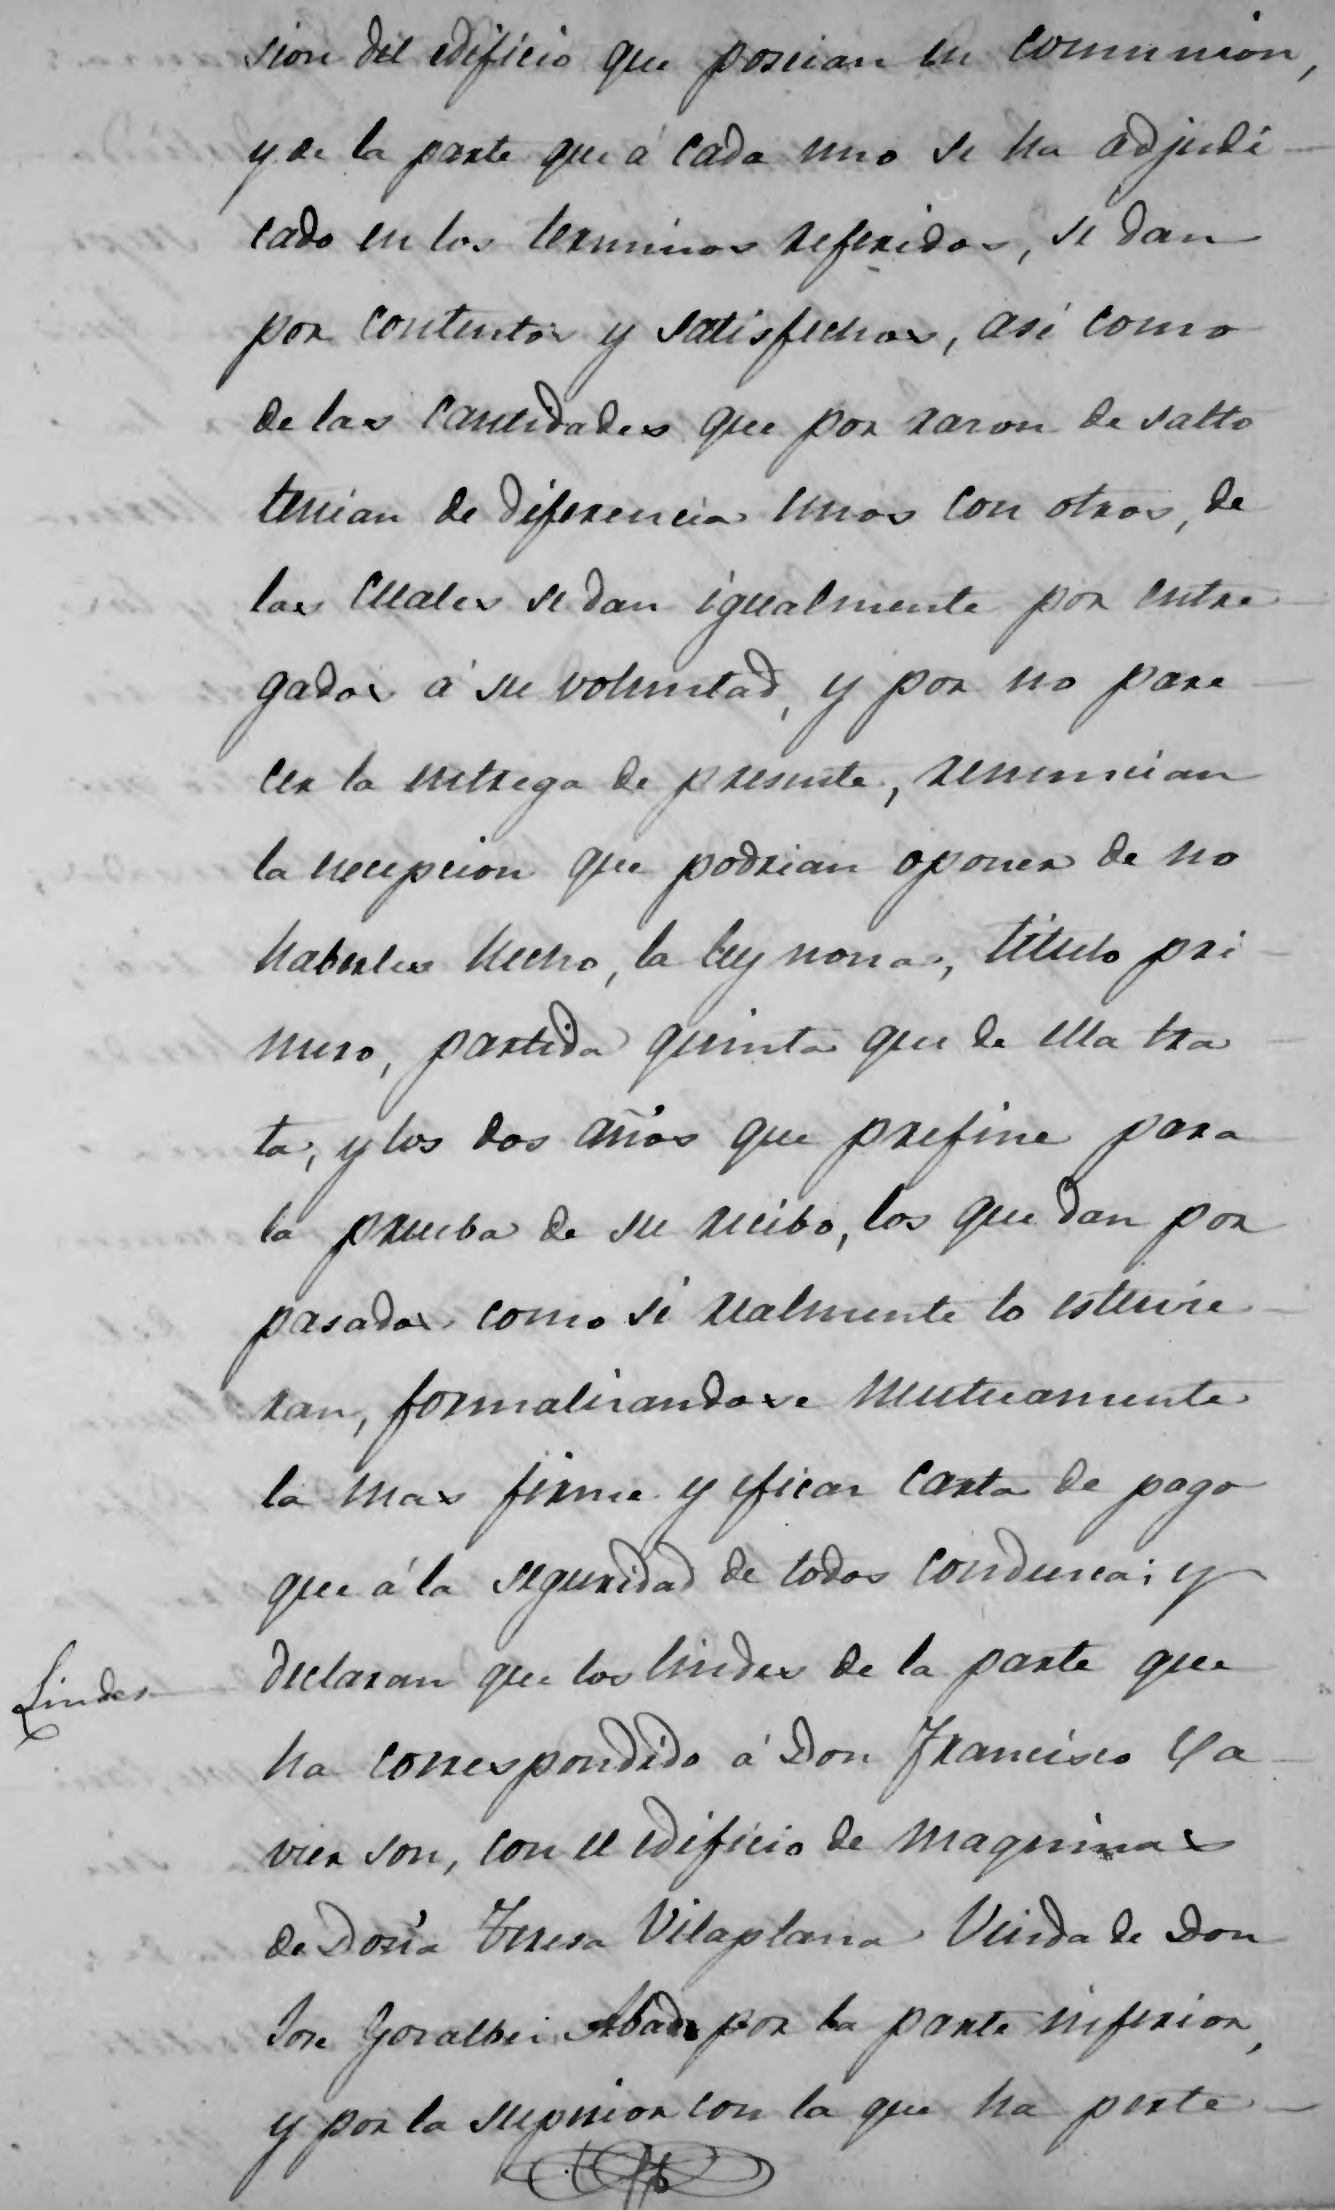 sion del edificio que poseian en comunion,
y de la parte que á cada uno se ha adjudi-
cado en los terminos referidos, se dan
por contentos y satisfechos, asi como
de las cantidades que por razon de salto
tenian de diferencia unos con otros, de
las cuales se dan igualmente por entre-
gados á su voluntad, y por no pare-
cer la entrega de presente, renuncian
la excepcion que podrian oponer de no
haberles hecho, la ley nona, titulo pri-
mero, partida quinta que de ella tra-
ta, y los dos años que prefine para
la prueba de su recibo, los que dan por
pasados como si realmente lo estuvie-
ran, formalizandose mutuamente
la mas firme y eficaz carta de pago
que á la seguridad de todos conduzca; y
declaran que los lindes de la parte que
Lindes
ha correspondido á Don Francisco Xa-
vier son, con el edificio de maquinas
de Doña Teresa Vilaplana Viuda de Don
Jose Gosalbez Abad por la parte inferior,
y por la superior con la que ha perte-